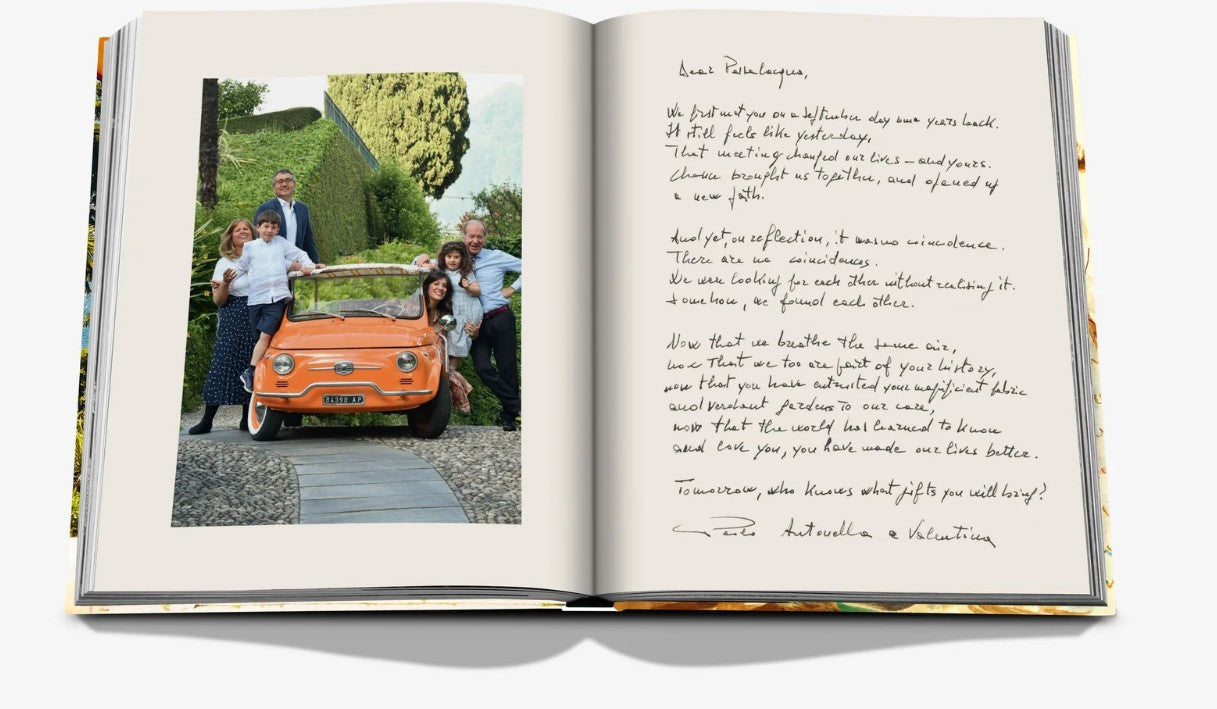 04390 AP
Dear Passalacqua,
We first met you on a September day some years back.
It still feels like yesterday,
That meeting changed our lives – and yours.
Chance brought us together, and opened up
a new path.
And yet, on reflection, it was no coincidence.
There are no coincidences.
We were looking for each other without realising it.
Somehow, we found each other.
Now that we breathe the same air,
now that we too are part of your history,
now that you have entrusted your magnificent fabric
and verdant gardens to our care,
now that the world has learned to know
and love you, you have made our lives better.
Tomorrow, who knows what gifts you will bring?
Paolo Antonella e Valentina